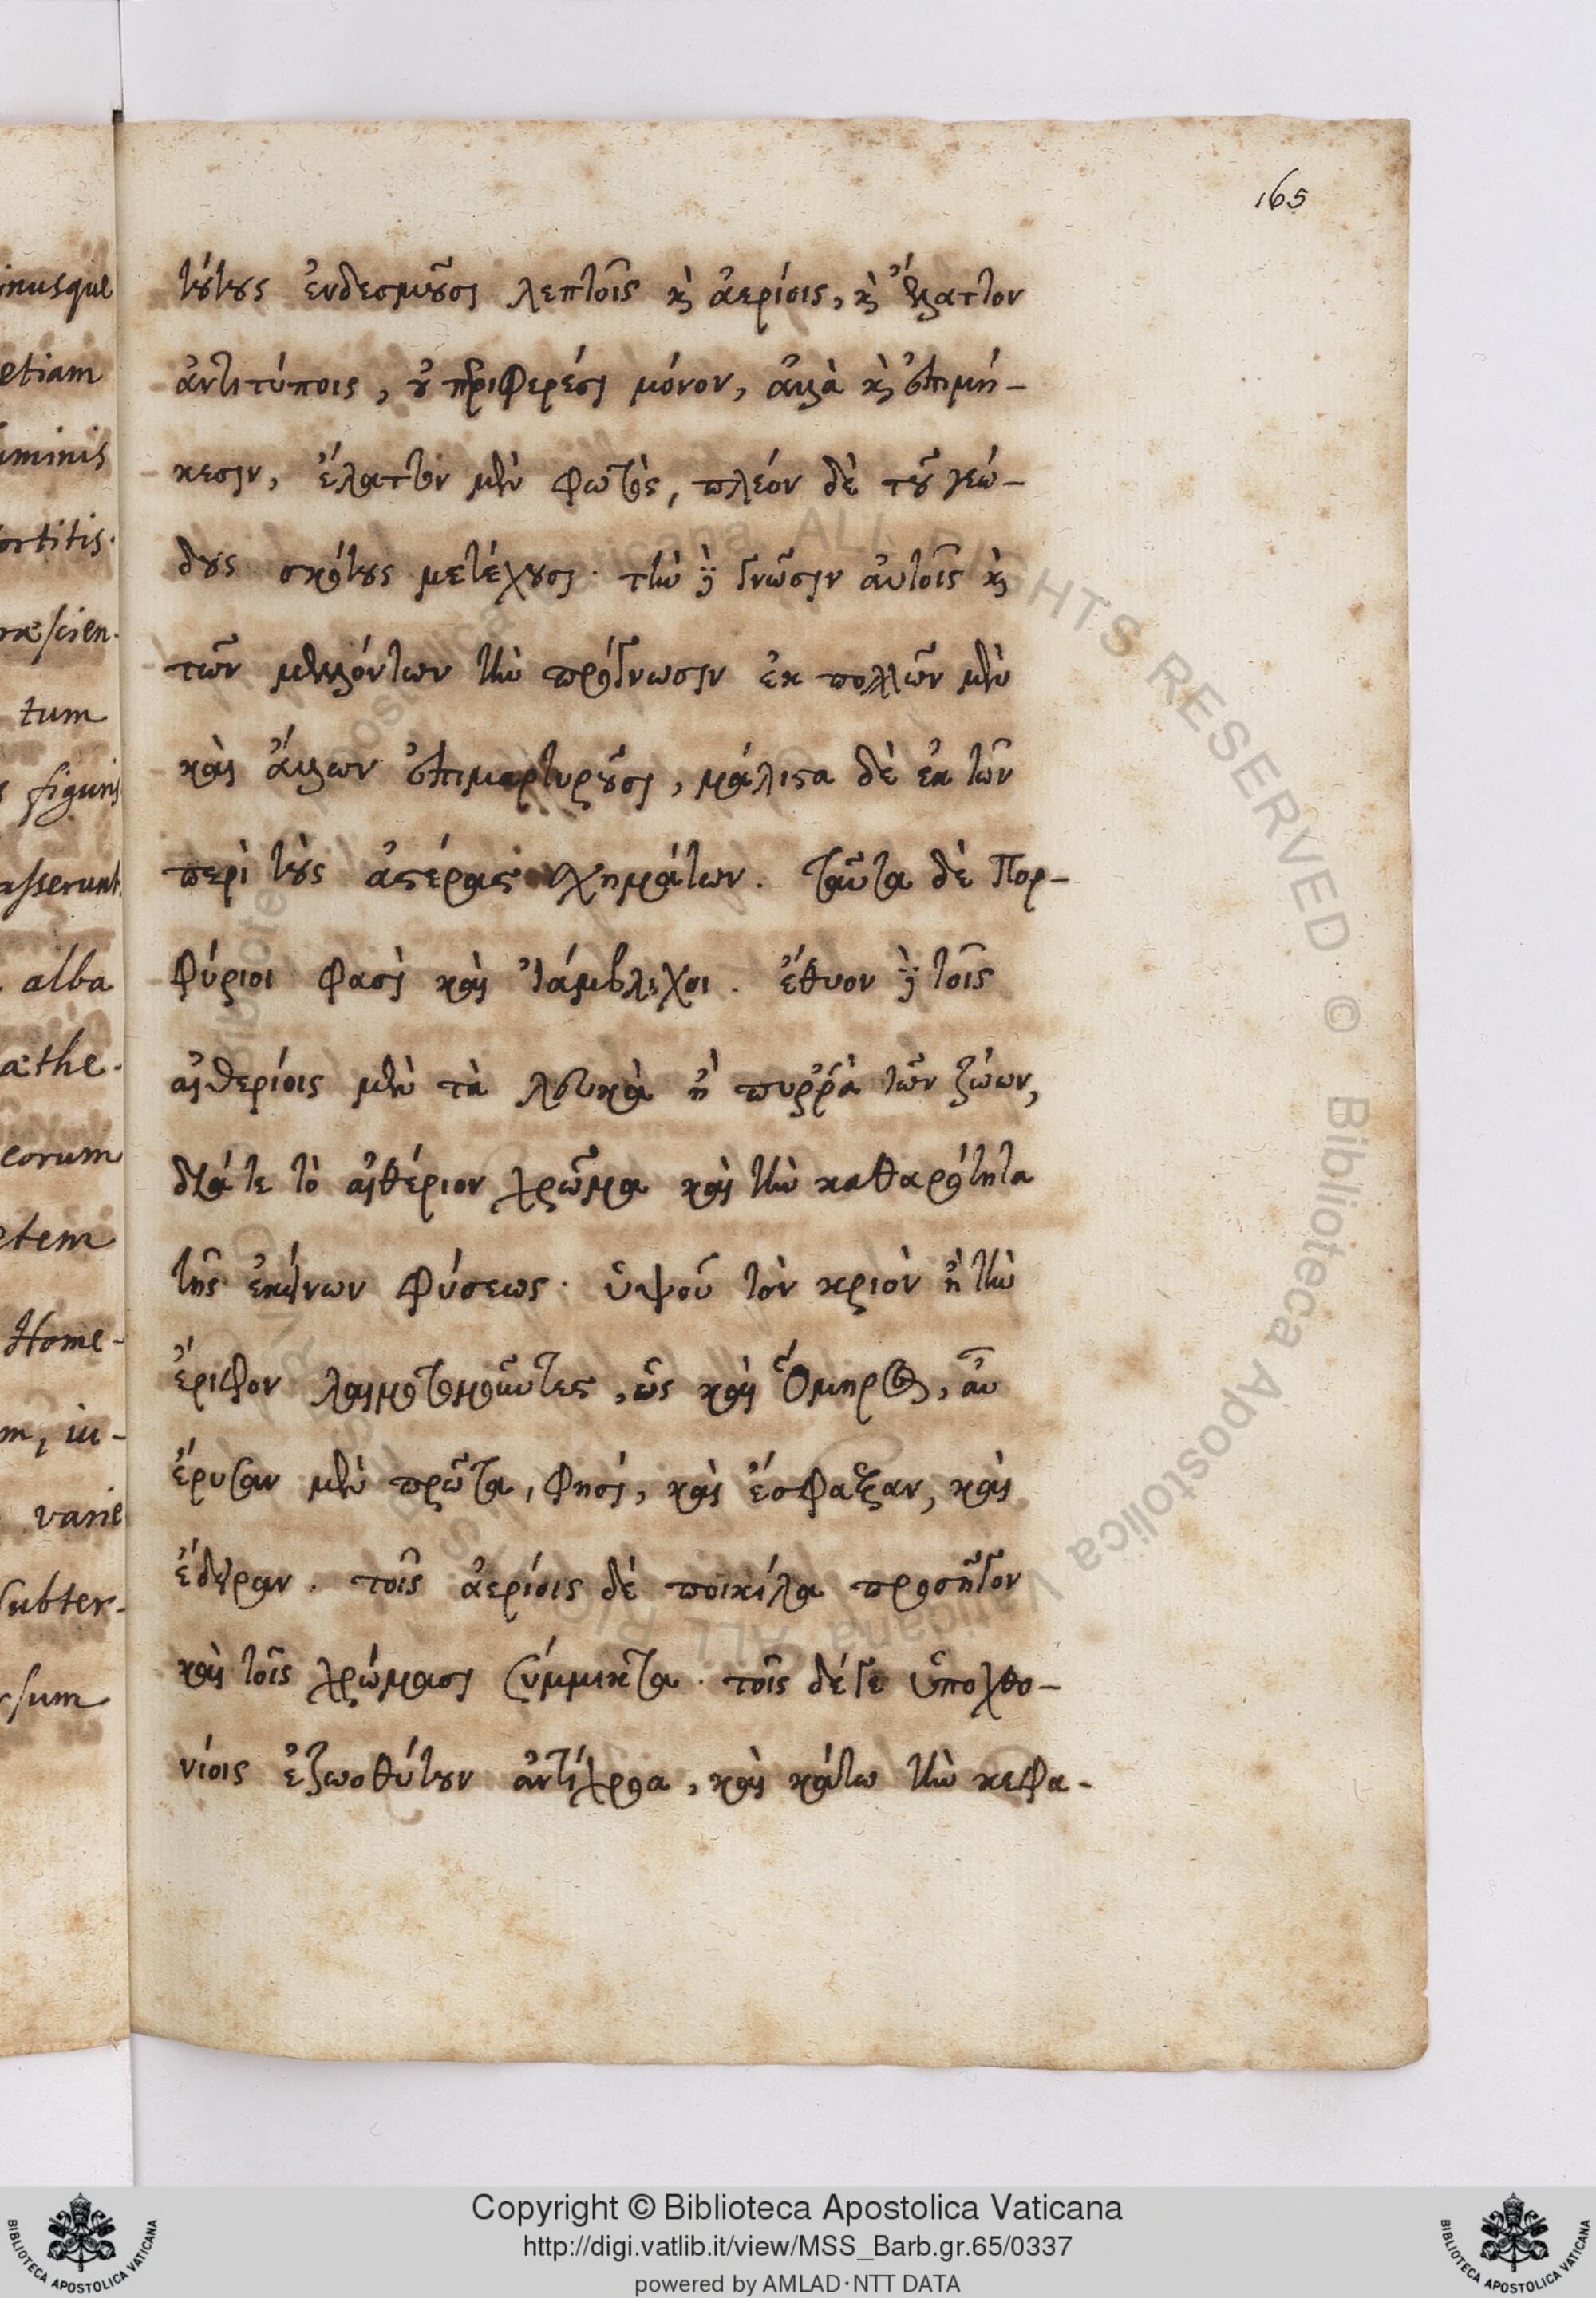 165
τούτους ἐνδεσμοῦσι λεπτοῖς καὶ ἀερίοις, καὶ ἔλλαττον
ἀντιτύποις, οὐ περιφερέσι μόνον, ἀλλὰ καὶ ἐπιμή-
κεσιν, ἔλαττον μὲν φωτὸς, πλέον δὲ τοῦ γεώ-
δους σκότους μετέχουσι. τὴν γὰρ γνῶσιν αὐτοῖς καὶ
τῶν μελλόντων τὴν πρόγνωσιν ἐκ πολλῶν μὲν
καὶ ἄλλων ἐπιμαρτυροῦσι, μάλιστα δὲ ἐκ τῶν
περὶ τοὺς ἀστέρας σχημάτων. ταῦτα δὲ Πορ-
φύριοι φασὶ καὶ Ἰάμβλιχοι. ἔθυον γὰρ τοῖς
αἰθερίοις μὲν τὰ λευκὰ ἢ πυῤῥὰ τῶν ζώων,
διά τε τὸ αἰθέριον χρῶμα καὶ τὴν καθαρότητα
τῆς ἐκείνων φύσεως. ὑψοῦ τὸν κριὸν ἢ τὴν
ἔριφον λαιμοτομοῦντες, ὡς καὶ Ὅμηρος, αὖ
ἔρυσαν μὲν πρῶτα, φησί, καὶ ἔσφαξαν, καὶ
ἔδειραν. τοῖς ἀερίοις δὲ ποικίλα προσῆγον
καὶ τοῖς χρώμασι σύμμικτα. τοῖς δέ γε ὑποχθο-
νίοις ἐζωοθύτουν ἀντίχροα, καὶ κάτω τὴν κεφα-
inusque
etiam
uminis
ortitis.
ræscien-
tum
figuris
asserunt.
alba
æthe-
eorum
etem
Home-
m, iu-
varie
subter-
rsum
Biblioteca Apostolica Vaticana ALL RIGHTS RESERVED © Biblioteca Apostolica Vaticana ALL RIGHTS RESERVED ©
Copyright © Biblioteca Apostolica Vaticana
http://digi.vatlib.it/view/MSS_Barb.gr.65/0337
powered by AMLAD·NTT DATA
BIBLIOTECA APOSTOLICA VATICANA
BIBLIOTECA APOSTOLICA VATICANA